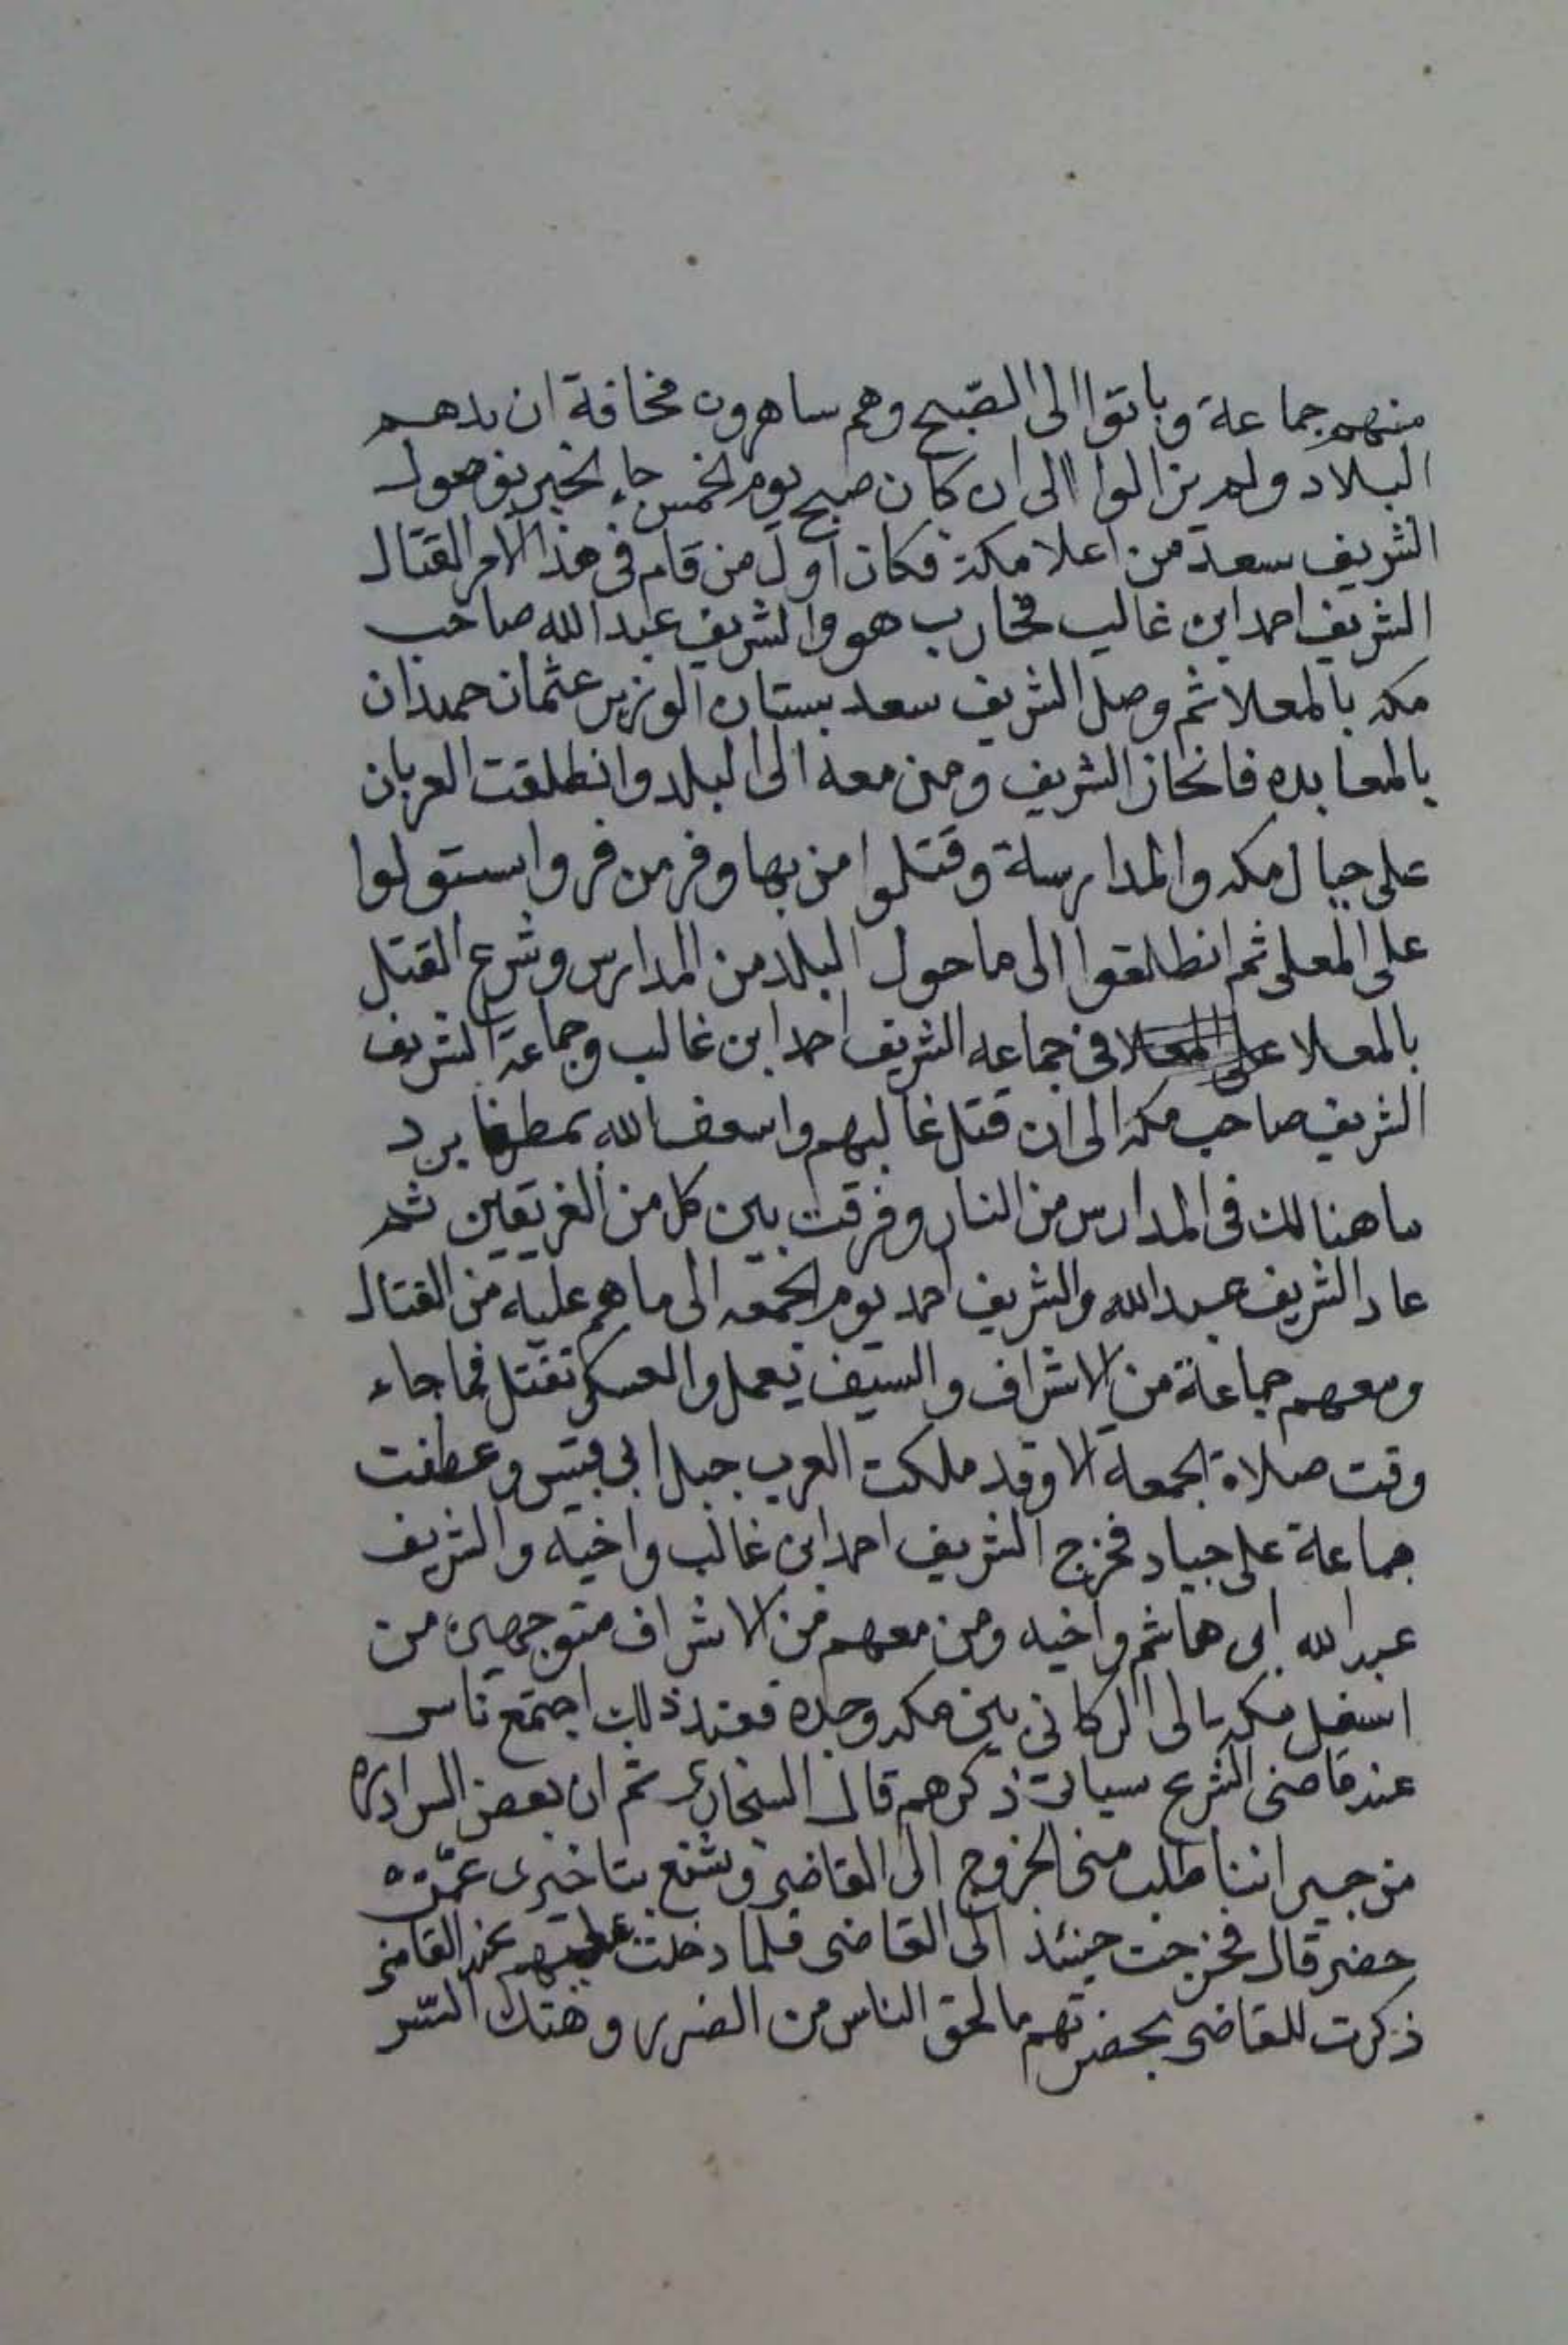 منهم جماعة وباتوا الى الصّبح وهم ساهرون مخافة ان يدهم
البلاد ولم يزالوا الى ان كان صبح يوم الخمس جاء الخبر بوصول
الشريف سعد من اعلا مكة فكان اول من قام فى هذا الامر القتال
الشريف احمد ابن غالب فحارب هو والشريف عبد الله صاحب
مكه بالمعلا ثم وصل الشريف سعد بستان الوزير عثمان حميدان
بالمعابده فانحاز الشريف ومن معه الى البلد وانطلقت العربان
على جبال مكه والمدارسة وقتلوا من بها وفر من فر واستولوا
على المعلى ثم انطلقوا الى ما حول البلد من المدارس وشرع القتل
بالمعلا على المعلا فى جماعه الشريف احمد ابن غالب وجماعة الشريف
الشريف صاحب مكه الى ان قتل غالبهم واسعف الله بمطر برد
ما هنالك فى المدارس من النار وفرقت بين كل من الفريقين ثم
عاد الشريف عبد الله والشريف احمد يوم الجمعه الى ما هم عليه من القتال
ومعهم جماعة من الاشراف والسيف يعمل والعسكر تقتل فما جاء
وقت صلاة الجمعة الا وقد ملكت العرب جبل ابى قبيس وعطفت
جماعة على جياد فخرج الشريف احمد ابن غالب واخيه والشريف
عبد الله ابن هاشم واخيه ومن معهم من الاشراف متوجهين من
اسفل مكه الى الركانى بين مكه وجده فعند ذلك اجتمع ناس
عند قاضى الشرع سيات ذكرهم قال السنجارى ثم ان بعض السراده
من جيراننا طلب منى الخروج الى القاضى وشنع بتاخيرى عمّن
حضر قال فخرجت حينئذ الى القاضى فلما دخلت عند القاضى
ذكرت للقاضى بحضرتهم ما لحق الناس من الضرر وهتك السّتر